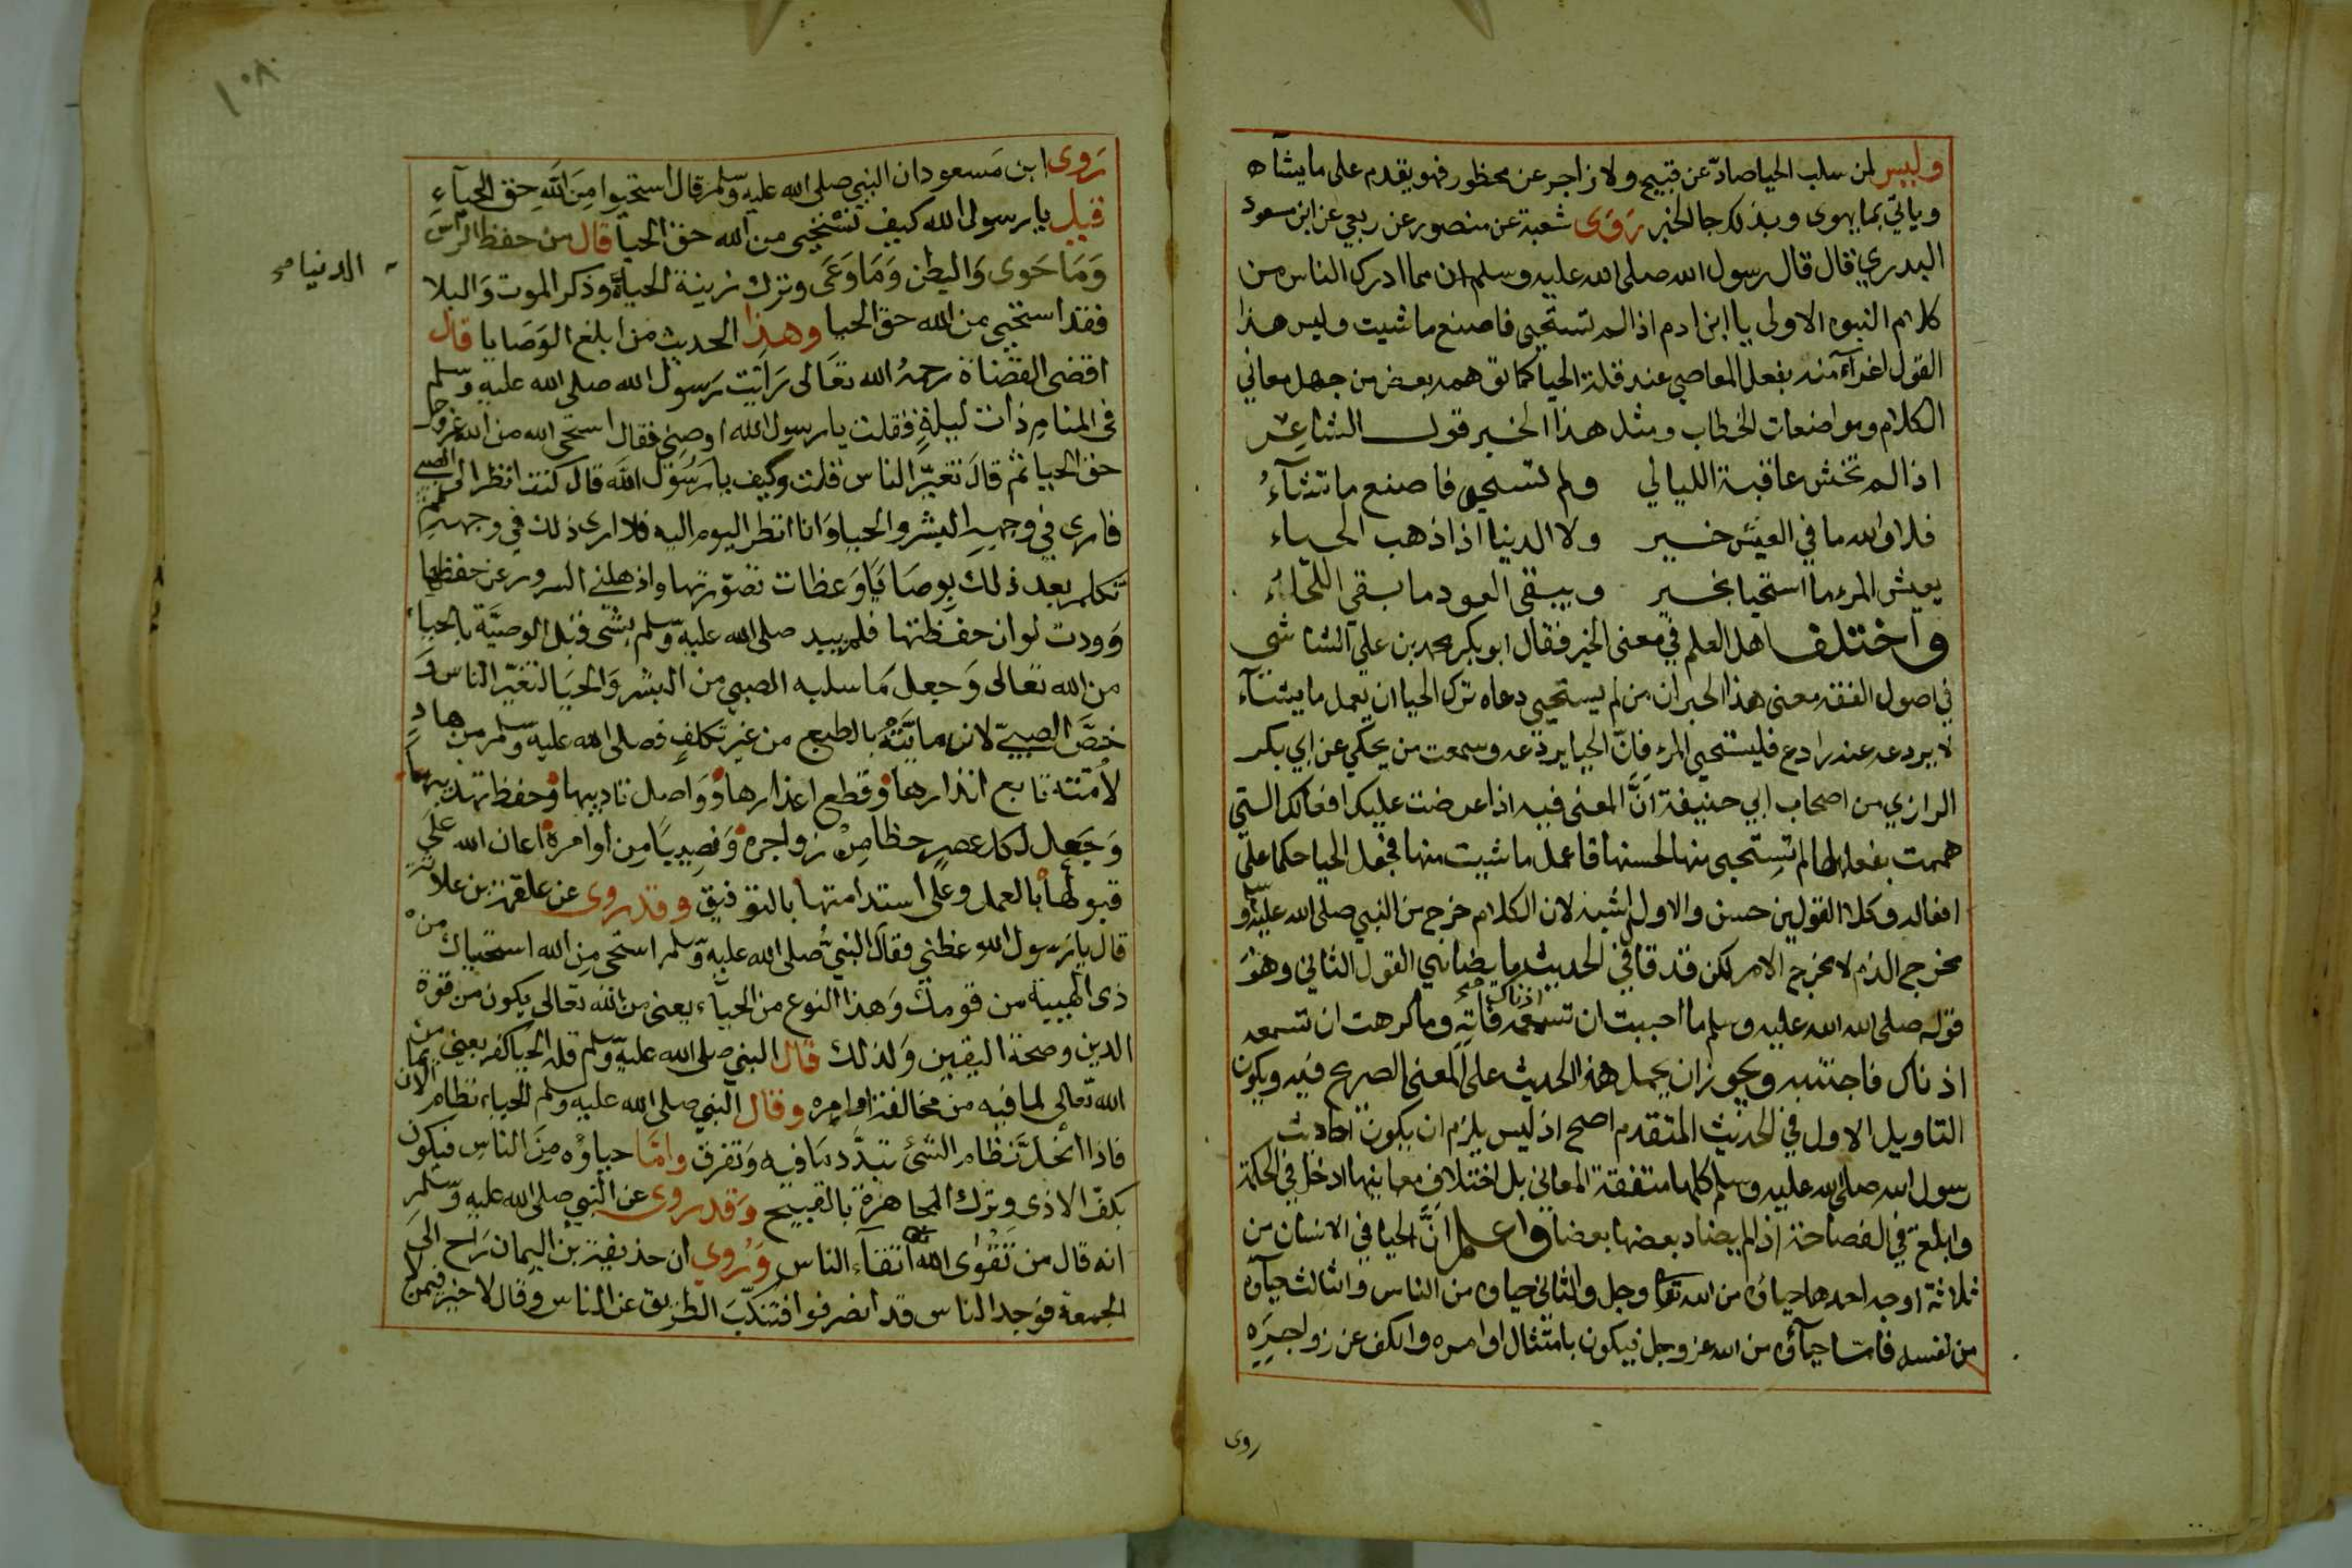 وليس لمن سلب الحيا صادّ عن قبيح ولا زاجر عن محظور فهو يقدم على ما يشاه
وياتي بما يهوى وبذلك جا الخبر رَوَى شعبة عن منصور عن ربعي عن ابن مسعود
البدري قال قال رسول الله صلى الله عليه وسلم ان مما ادرك الناس من
كلام النبوه الاولى يا ابن ادم اذا لم تستحيى فاصنع ما شيت وليس هذا
القول اغرآء منه بفعل المعاصي عند قلة الحيا كما توهمه بعض من جهل معاني
الكلام ومواضعات الخطاب ومثل هذا الخبر قول الشاعر
اذا لم تخش عاقبة الليالي ولم تستحيى فاصنع ما تشآءُ
فلا والله ما في العيش خير ولا الدنيا اذا ذهب الحياء
يعيش المرء ما استحيا بخير ويبقى العود ما بقي اللحاءُ
واختلف اهل العلم في معنى الخبر فقال ابو بكر محمد بن علي الشاشي
في اصول الفقه معنى هذا الخبر ان من لم يستحيى دعاه ترك الحيا ان يعمل ما يشآء
لا يردعه عنه رادع فليستحيى المرء فانّ الحيا يردعه وسمعت من يحكي عن ابي بكر
الرازي من اصحاب ابي حنيفة انَّ المعنى فيه اذا عرضت عليك افعالك التي
هممت بفعلها فلم تستحيى منها لحسنها فاعمل ما شيت منها فجعل الحيا حكما على
افعاله وكلا القولين حسن والاول اشبه لان الكلام خرج من النبي صلى الله عليه وسلم
مخرج الذم لا مخرج الامر لكن قد قا في الحديث ما يضاهي القول الثاني وهو
قوله صلى الله الله عليه وسلم ما احببت ان تسمعه اذناك فاته وما كرهت ان تسمعه
اذناك فاجتنبه ويجوز ان يحمل هذا الحديث على المعنى الصريح فيه ويكون
التاويل الاول في الحديث المتقدم اصح اذ ليس يلزم ان يكون احاديث
رسول الله صلى الله عليه وسلم كلها متفقة المعاني بل اختلاف معانيها ادخل في الحكمة
وابلغ في الفصاحة اذا لم يضاد بعضها بعضا واعلم انَّ الحيا في الانسان من
ثلاثة اوجه احدها حياؤه من الله عز وجل والثاني حياوه من الناس والثالث حيآوه
من نفسه فاما حيآؤه من الله عز وجل فيكون بامتثال اوامره والكف عن زواجره
روى
١٠٨
رَوى ابن مَسعود ان النبي صلى الله عليه وسلم قال استحيوا مِنَ الله حق الحيآءِ
قيل يا رسول الله كيف نستحيى من الله حق الحيا قال من حفظ الرأس
وَمَا حَوى وَالبطن وَمَا وَعَى وترك زينة الحياة وذكر الموت وَالبلا
الدنيا صح
فقد استحيى من الله حق الحيا وهذا الحديث من ابلغ الوَصَايا قال
اقضى القضاة رحمهُ الله تعَالى رَايت رَسول الله صلى الله عليه وسلم
في المنام ذات ليلةٍ فقلت يا رسول الله اوصني فقال استحى الله من الله عز وجل
حق الحيا ثم قالَ تغيّر الناس قلت وكيف يا رَسُول الله قال كنت انظر الى الصبي
فارى في وجههِ البشر والحيا وَانا انظر اليوم اليه فلا ارى ذلك في وجههِ ثم
تكلم بعد ذلك بِوصَايَا وَعظات تصوّرتها واذهلني السرور عن حفظها
وَوددت لو ان حفظتها فلم يبد صلى الله عليه وسلم بشى قبل الوصيَّة بالحياء
من الله تعالى وَجعل مَا سلبه الصبي من البشر وَالحيَا لتغيّر الناس وَ
خصَّ الصبيّ لان ما ياتيه بالطبع من غير تكلفٍ فصلى الله عليه وسلم من هادٍ
لأمته تابع انذارها وقطع اعذارها وَوَاصل تاديبها وحفظ تهذيبها
وَجَعل لكل عصرٍ حظا مِنْ زواجره وَنصِيبًا من اوامره اعان الله على
قبولها بالعمل وعلى استدامتها بالتوفيق وقد روى عن علقمة بن علاثة
قال يا رَسول الله عظني فقال النبيُّ صلى الله عليه وسلم استحى مِنَ الله استحياك من
ذى الهيبة من قومك وَهذا النوع من الحيآء يعنى من الله تعالى يكون من قوة
الدين وصحة اليقين وَلذلك قال النبي صلى الله عليه وسلم قلة الحيا كفر يعني من
الله تعالى لما فيه من مخالفة اوامره وقال النبي صلى الله عليه وسلم الحياء نظام الايمان
فاذا انحلَّ نظام الشئ تبدَّد مَا فيه وَتفرق وامَّا حياوُه مِنَ الناس فيكون
بكفّ الاذى وترك المجاهرة بالقبيح وَقد روى عن النبي صلى الله عليه وسلم
انه قال من تقوى الله اتقآء الناس وَرُوي ان حذيفة بن اليمان رَاح الى
الجمعة فوَجد الناس قد انصرفوا فتنكّبَ الطريق عن الناس وقال لا خير فيمن لا